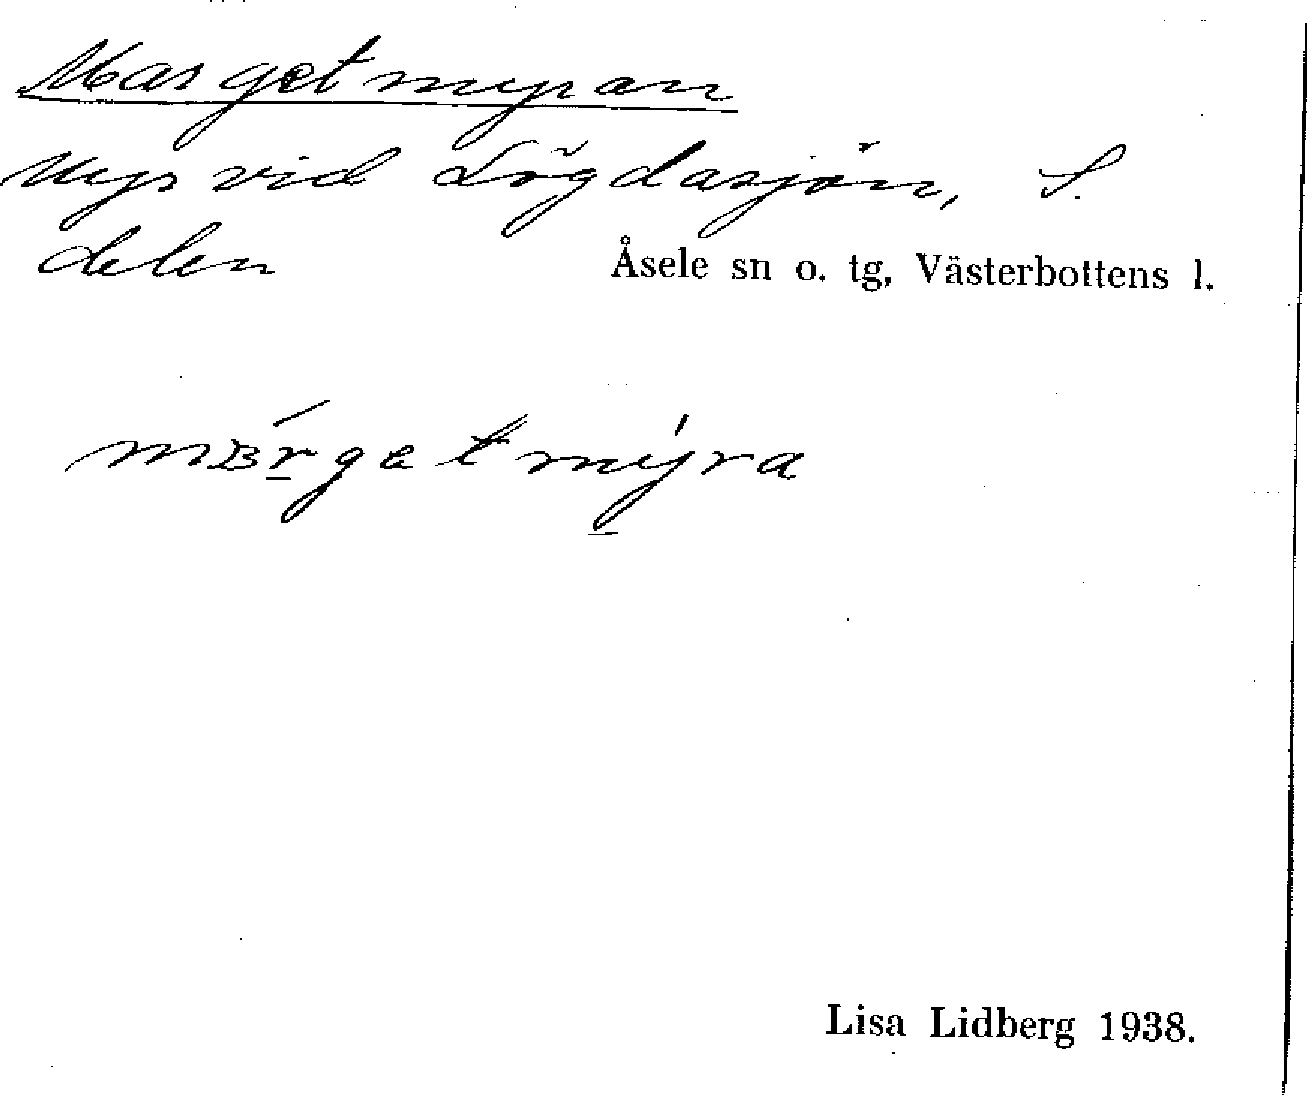 Margetmyran
Myr vid Lögdasjön, S.
delen
Åsele sn o. tg, Västerbottens l.
mʙŕgetmýra
Lisa Lidberg 1938.